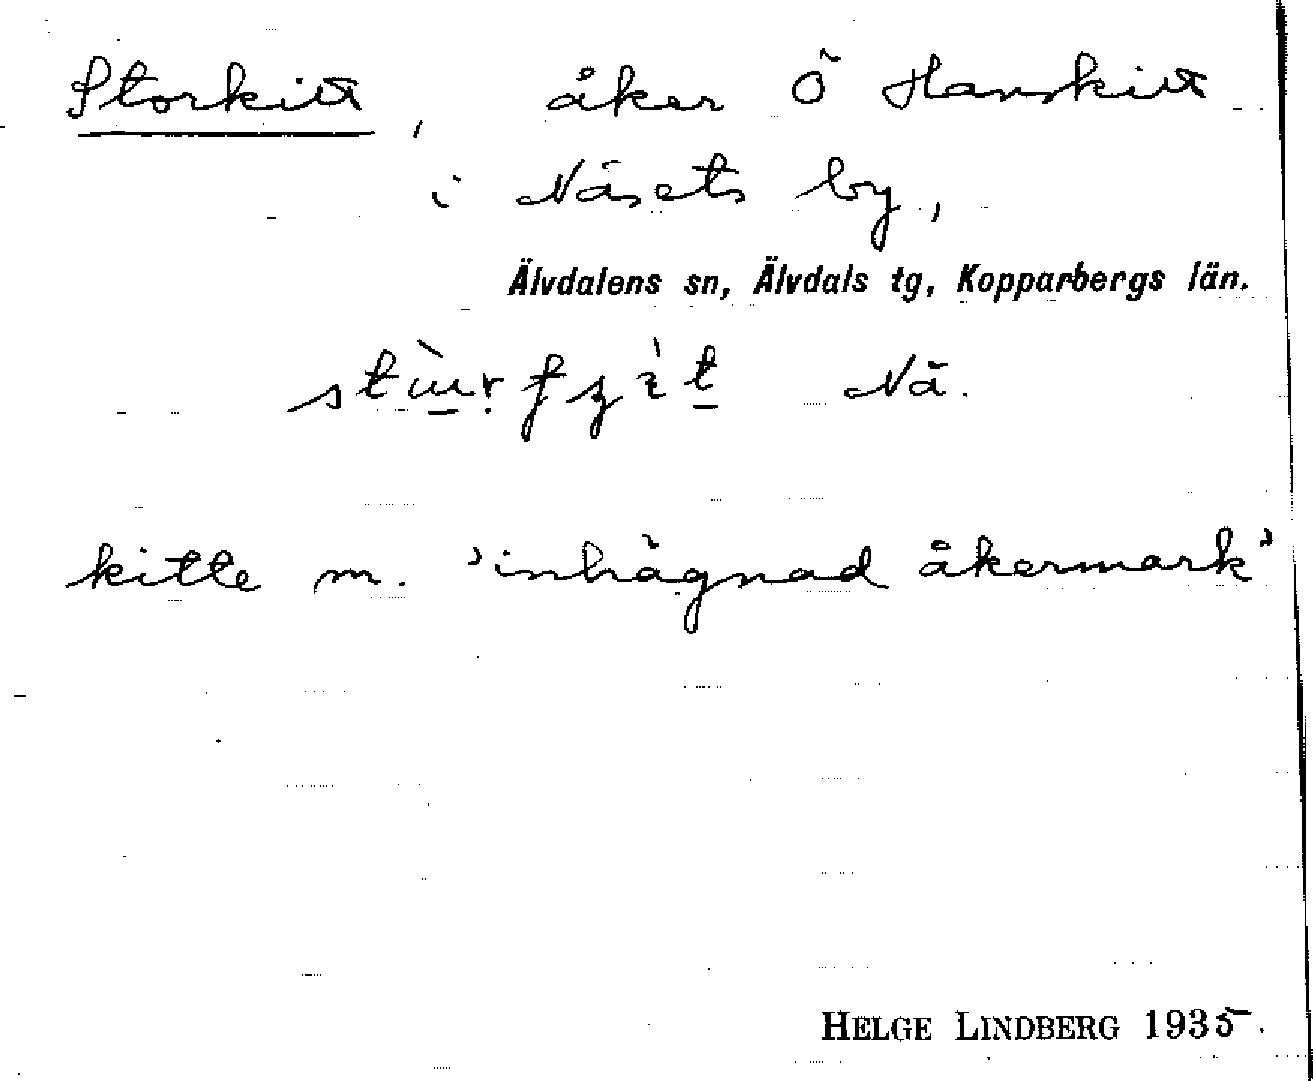 Storkitt, åker Ö Hanskitt
i Näsets by,
Älvdalens sn, Älvdals tg, Kopparbergs län.
Nä.
kitte m. 'inhägnad åkermark'
HELGE LINDBERG 1935.